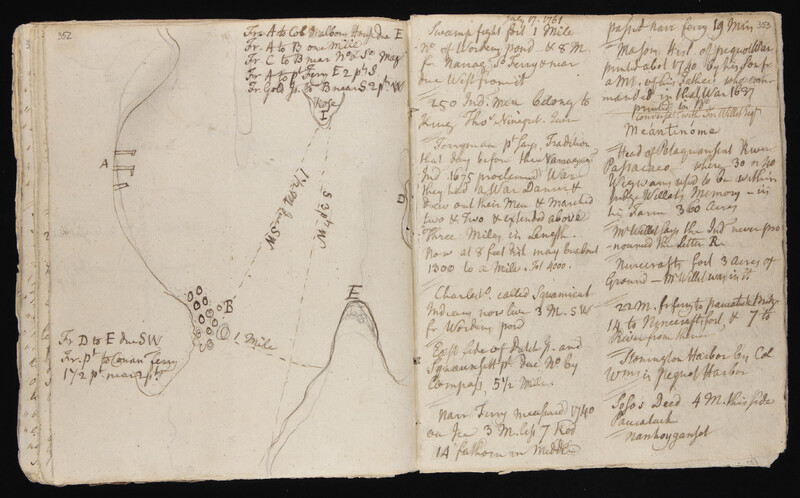 352
Fr. A to Col Malbons House due E
Fr. A to B one Mile
Fr. C to B near No & So Mag
Fr. A to pt Ferry E 2 pts S
Fr. Gold Is. to B near S 2 pts W
Rose
I
A
1 1/2 M due SW
S 3 pts W
B
E
1 Mile
D
Fr. D to E due SW
Fr. pt to Conan Ferry
1 1/2 pt near 2 pts
July 17. 1761
Swamp fight fort 1 Mile
No of Wordens pond & 8 M.
fr Narrag. So Ferry & near
due West from it
250 Ind. Men belong to
King Thos Ninegret.
Ferryman pt says, Tradition
that day before the Narragans.
Ind 1675 proclaimed War
they held a War Dance &
drew out their Men & Marched
two & two & extended above
Three Miles in Length.
Now at 8 feet dist may be about
1300 to a Mile. Tot 4000.
Charlesto. called Squamicut
Indians now live 3 M. SW
fr Wordens pond
East Side of Dutch I. and
pt due No by
Compass, 5 1/2 Miles
Narr Ferry measured 1740
on Ice 3 M. less 7 Rod
14 fathom in Middle
353
passed narr ferry 19 Min
Mason Hist. of pequot War
printed about 1740 by his
a Mr. of his Father who com-
manded in that War 1637
printed in
Conversed with Jn Willet Esq
Meantinomo
Head of Petaquamscut River
where 30 or 40
Wigwams used to be within
Willets Memory – in
his Farm 360 Acres
Mr Willet says the Ind never pro-
nounced the Letter R
Ninecrafts fort 3 Acres of
Ground – Mr Willet was in it
22 M. fr ferry to paucatuk Bridge
14 to Nynecrafts fort, & 7 to
River from thence
Stonington Harbor by Col
Wms is pequot Harbor
Soso's Deed 4 M. this side
Paucatuck
nanhoyganset